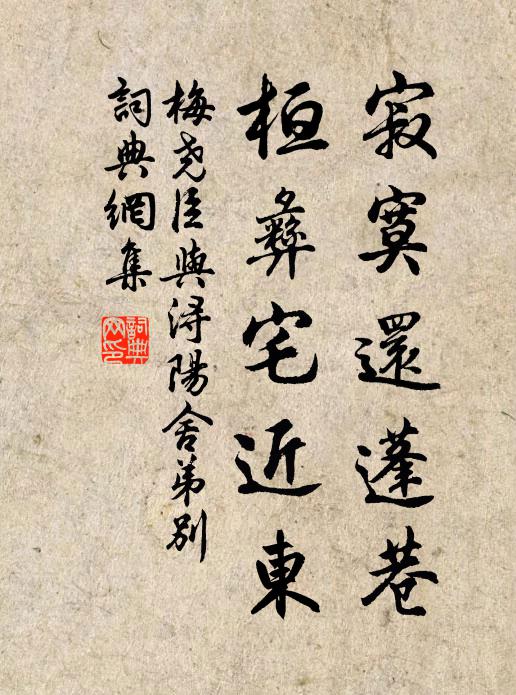 寂寞還蓬巷
桓彝宅近東
梅堯臣與浔陽舍弟別
詞典網集
詞典
网印